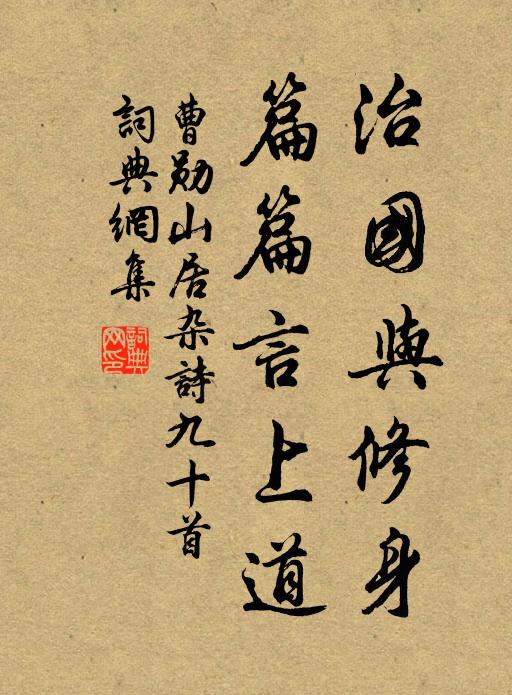 治國與修身
篇篇言上道
曹勛山居杂詩九十首
詞典網集
詞典
网印